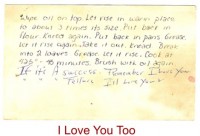 Wipe oil on top. Let rise in warm place
to about 3 times its size. Put back in
flour knead again. Put back in pans. Grease.
Let it rise again. Take it out. Bread. Break
into 2 loaves. Grease. Let it rise. Cook at
425° - 40 minutes. Brush with oil again.
If it's a success. Remember I love you
" " Failure I'll love you
I Love You Too